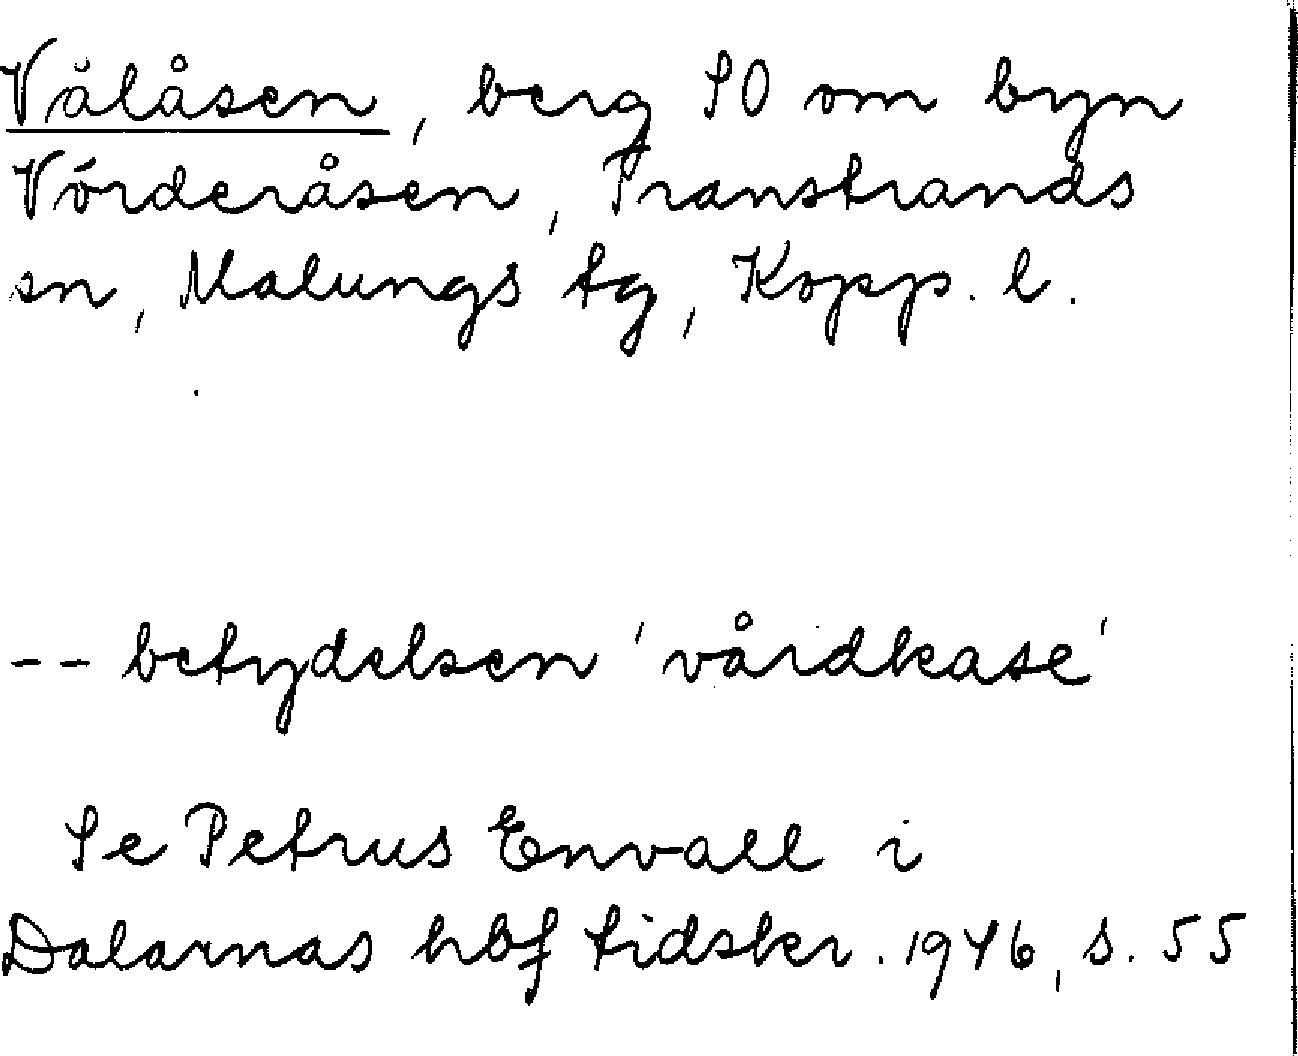 Vålåsen, berg SO om byn
Vörderåsen, Transtrands
sn, Malungs tg, Kopp. l.
-- betydelsen 'vårdkase'
Se Petrus Envall i
Dalarnas hbf tidskr. 1946, s. 55